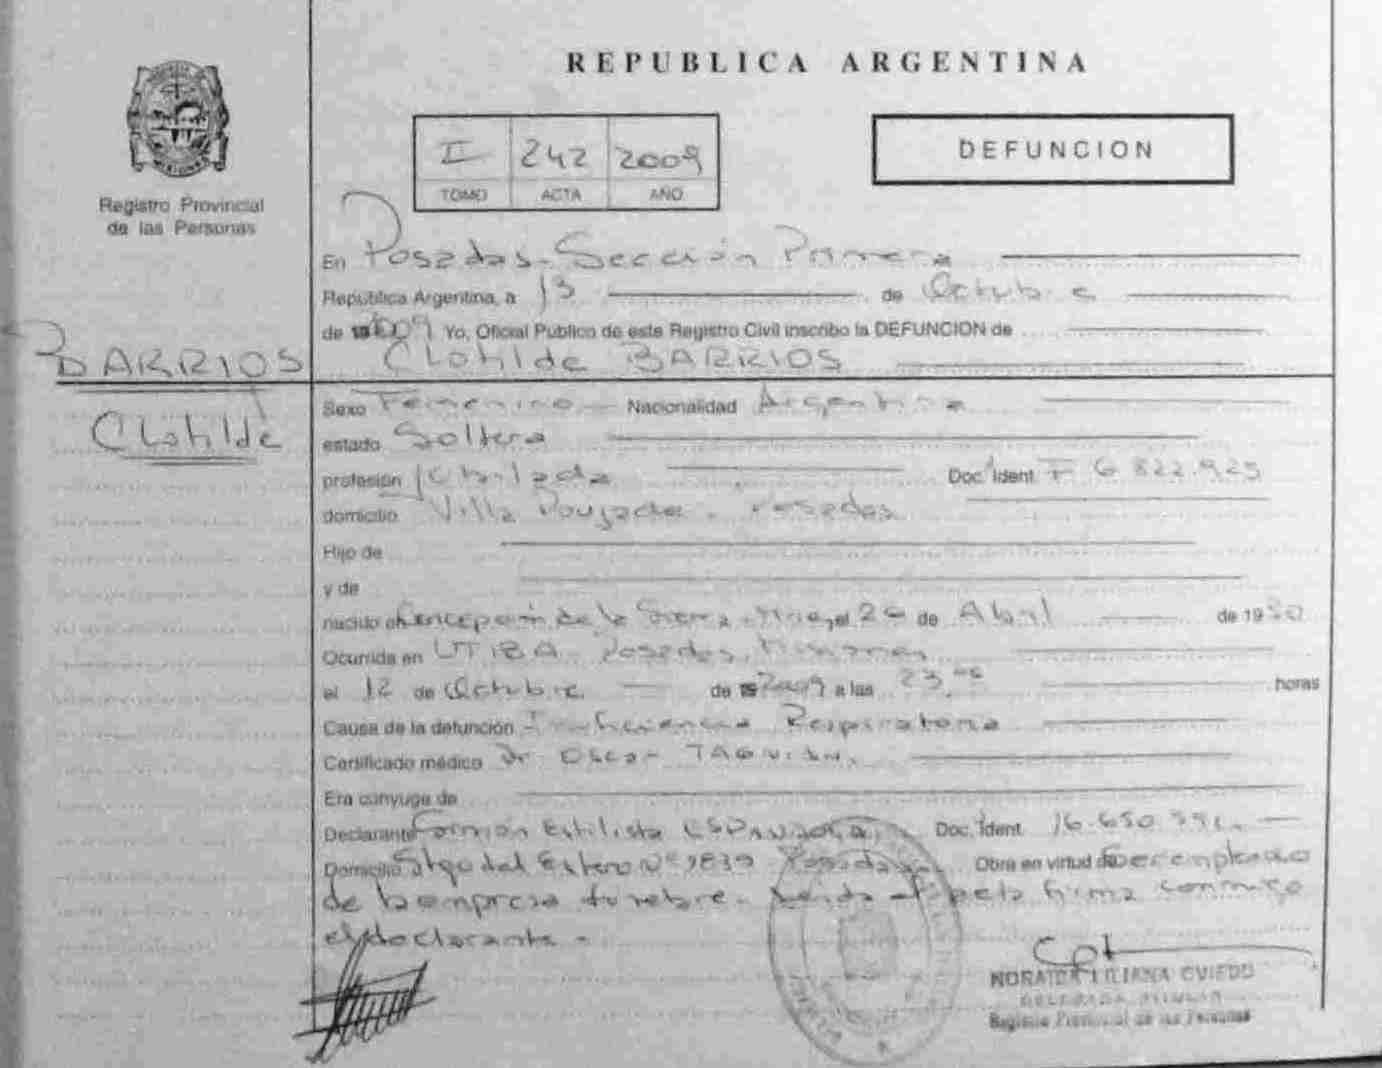 REPUBLICA ARGENTINA
II 242 2009
TOMO ACTA AÑO
DEFUNCION
Registro Provincial
de las Personas
En Posadas - Sección Primera
República Argentina, a 13 de Octubre
de 2009 Yo, Oficial Público de este Registro Civil inscribo la DEFUNCION de
BARRIOS
Clotilde BARRIOS
Clotilde
Sexo Femenino Nacionalidad Argentina
estado Soltera
profesión Jubilada Doc. Ident. F 6.822.925
domicilio Villa Poujade - Posadas
Hijo de
y de
nacido en Concepción de la Sierra - Mnes, el de Abril de 19
Ocurrida en Posadas, Misiones
el 12 de Octubre de 2009 a las 23, horas
Causa de la defunción Insuficiencia Respiratoria
Certificado médico Dr. Oscar
Era cónyuge de
Declarante Estilista Doc. Ident. 16.650.
Domicilio Stgo del Estero Nº Posadas Obra en virtud de Ser empleado
de la empresa fúnebre. Leída el acta firma conmigo
el declarante -
NORAIDA LILIANA OVIEDO
DELEGADA TITULAR
Registro Provincial de las Personas